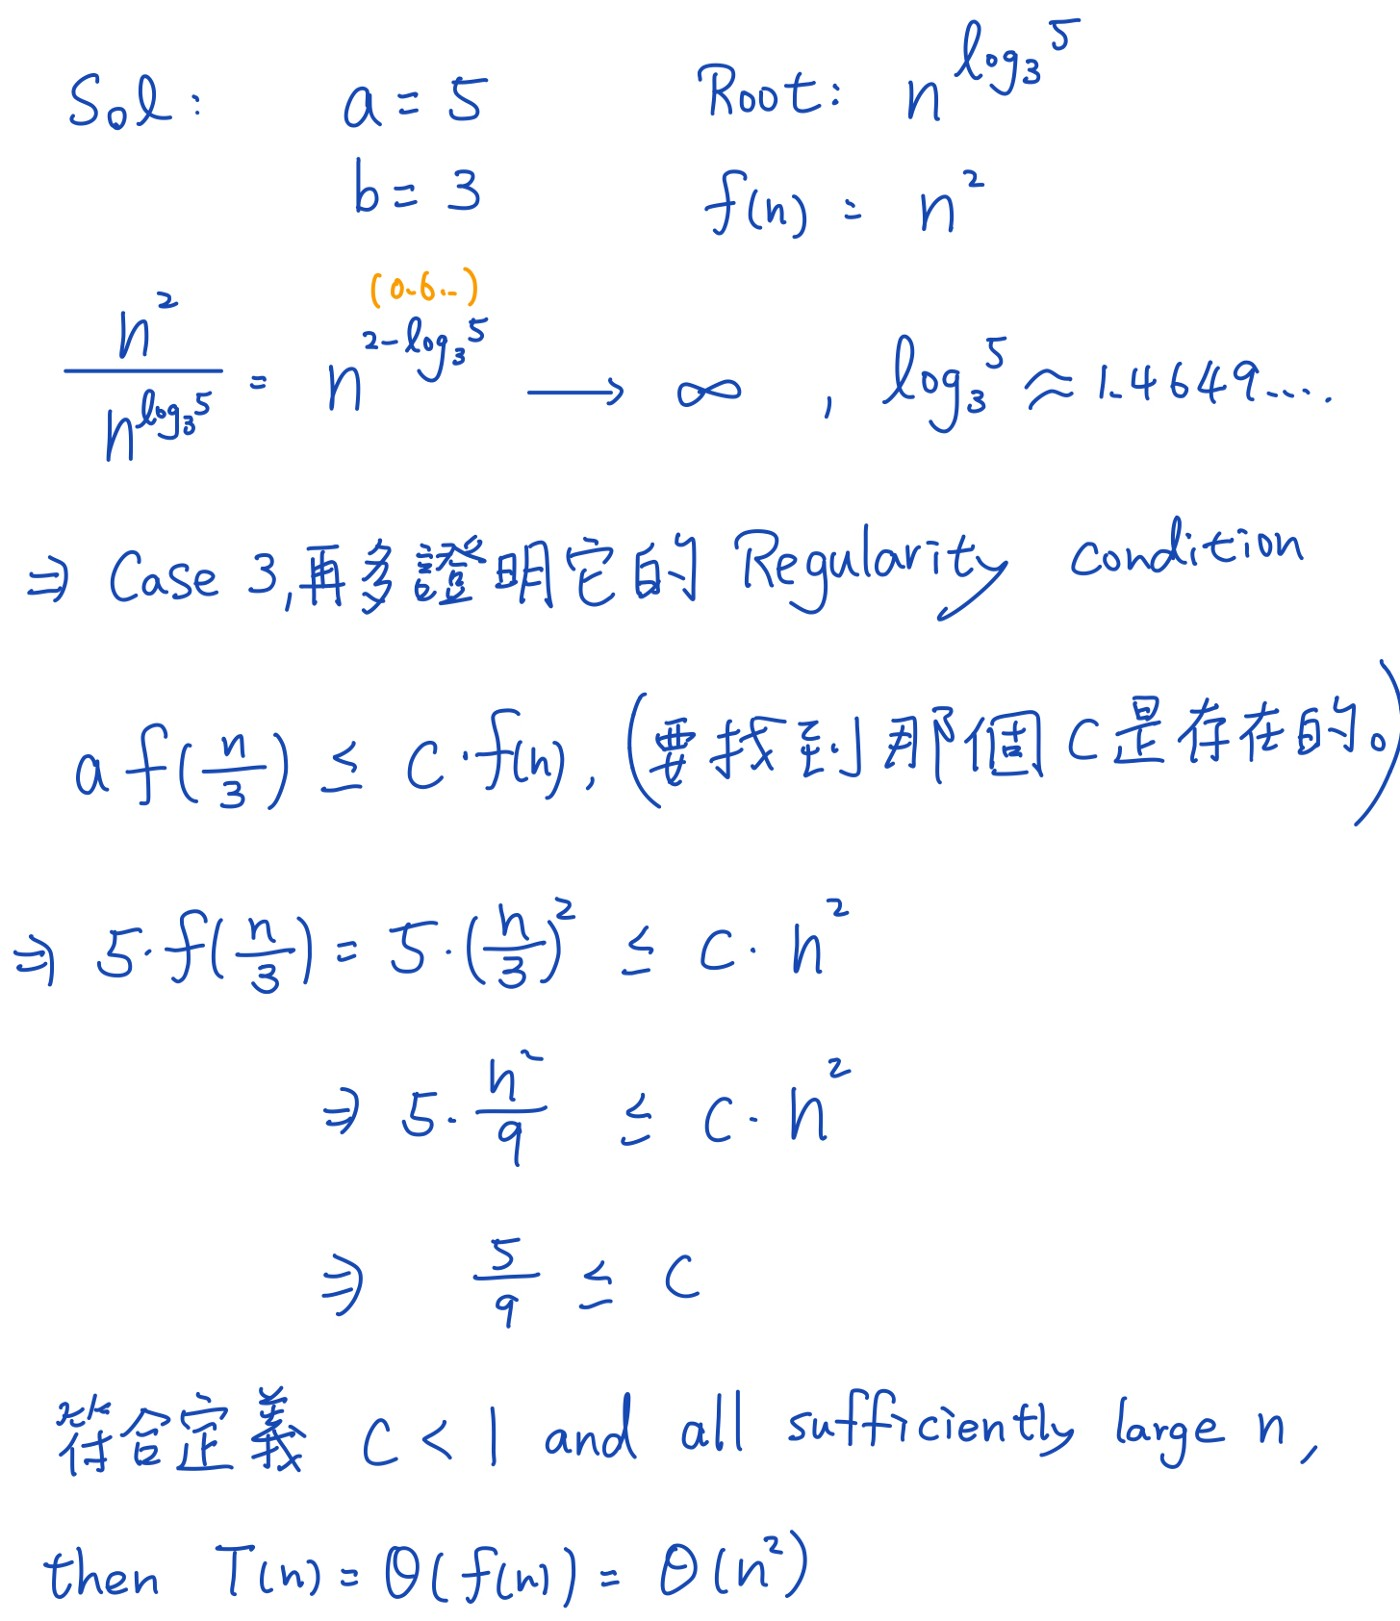 Sol: a = 5 Root: n^{log_3 5}
b = 3 f(n) = n^2
(0.6..)
n^2 / n^{log_3 5} = n^{2-log_3 5} ⟶ ∞ , log_3 5 ≈ 1.4649....
⇒ Case 3, 再多證明它的 Regularity condition
a f(n/3) ≤ c·f(n), (要找到那個 c 是存在的。)
⇒ 5·f(n/3) = 5·(n/3)^2 ≤ c·n^2
⇒ 5·n^2/9 ≤ c·n^2
⇒ 5/9 ≤ c
符合定義 c < 1 and all sufficiently large n,
then T(n) = Θ(f(n)) = Θ(n^2)